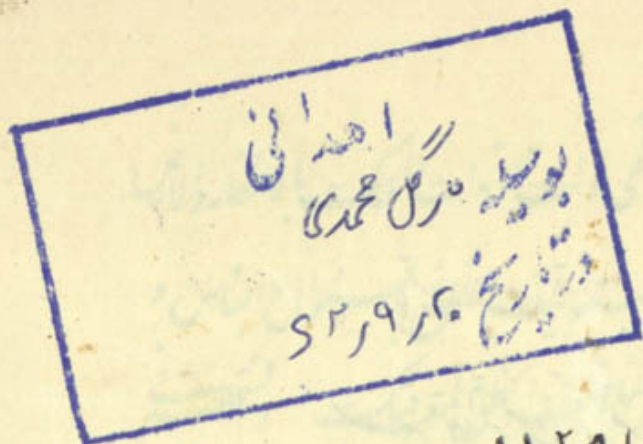 اهدائی
بوسیله گل محمدی
در تاریخ ۲۰ر۹ر۶۲